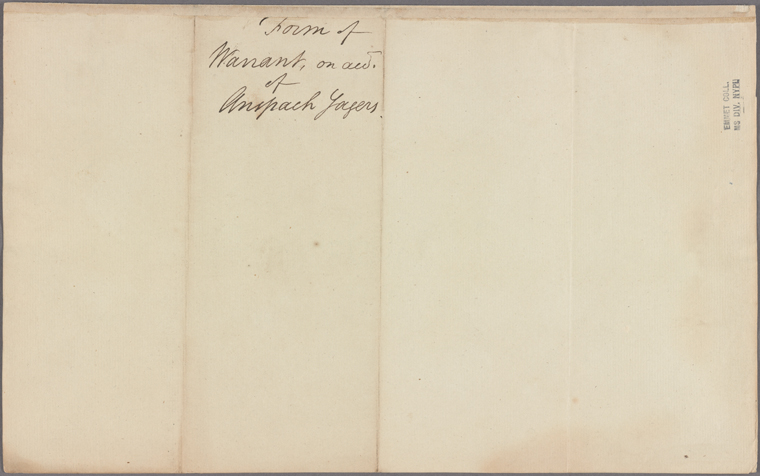 Form of
Warrant, on acct.
of
Anspach Yagers.
EMMET COLL.
MS DIV. NYPL